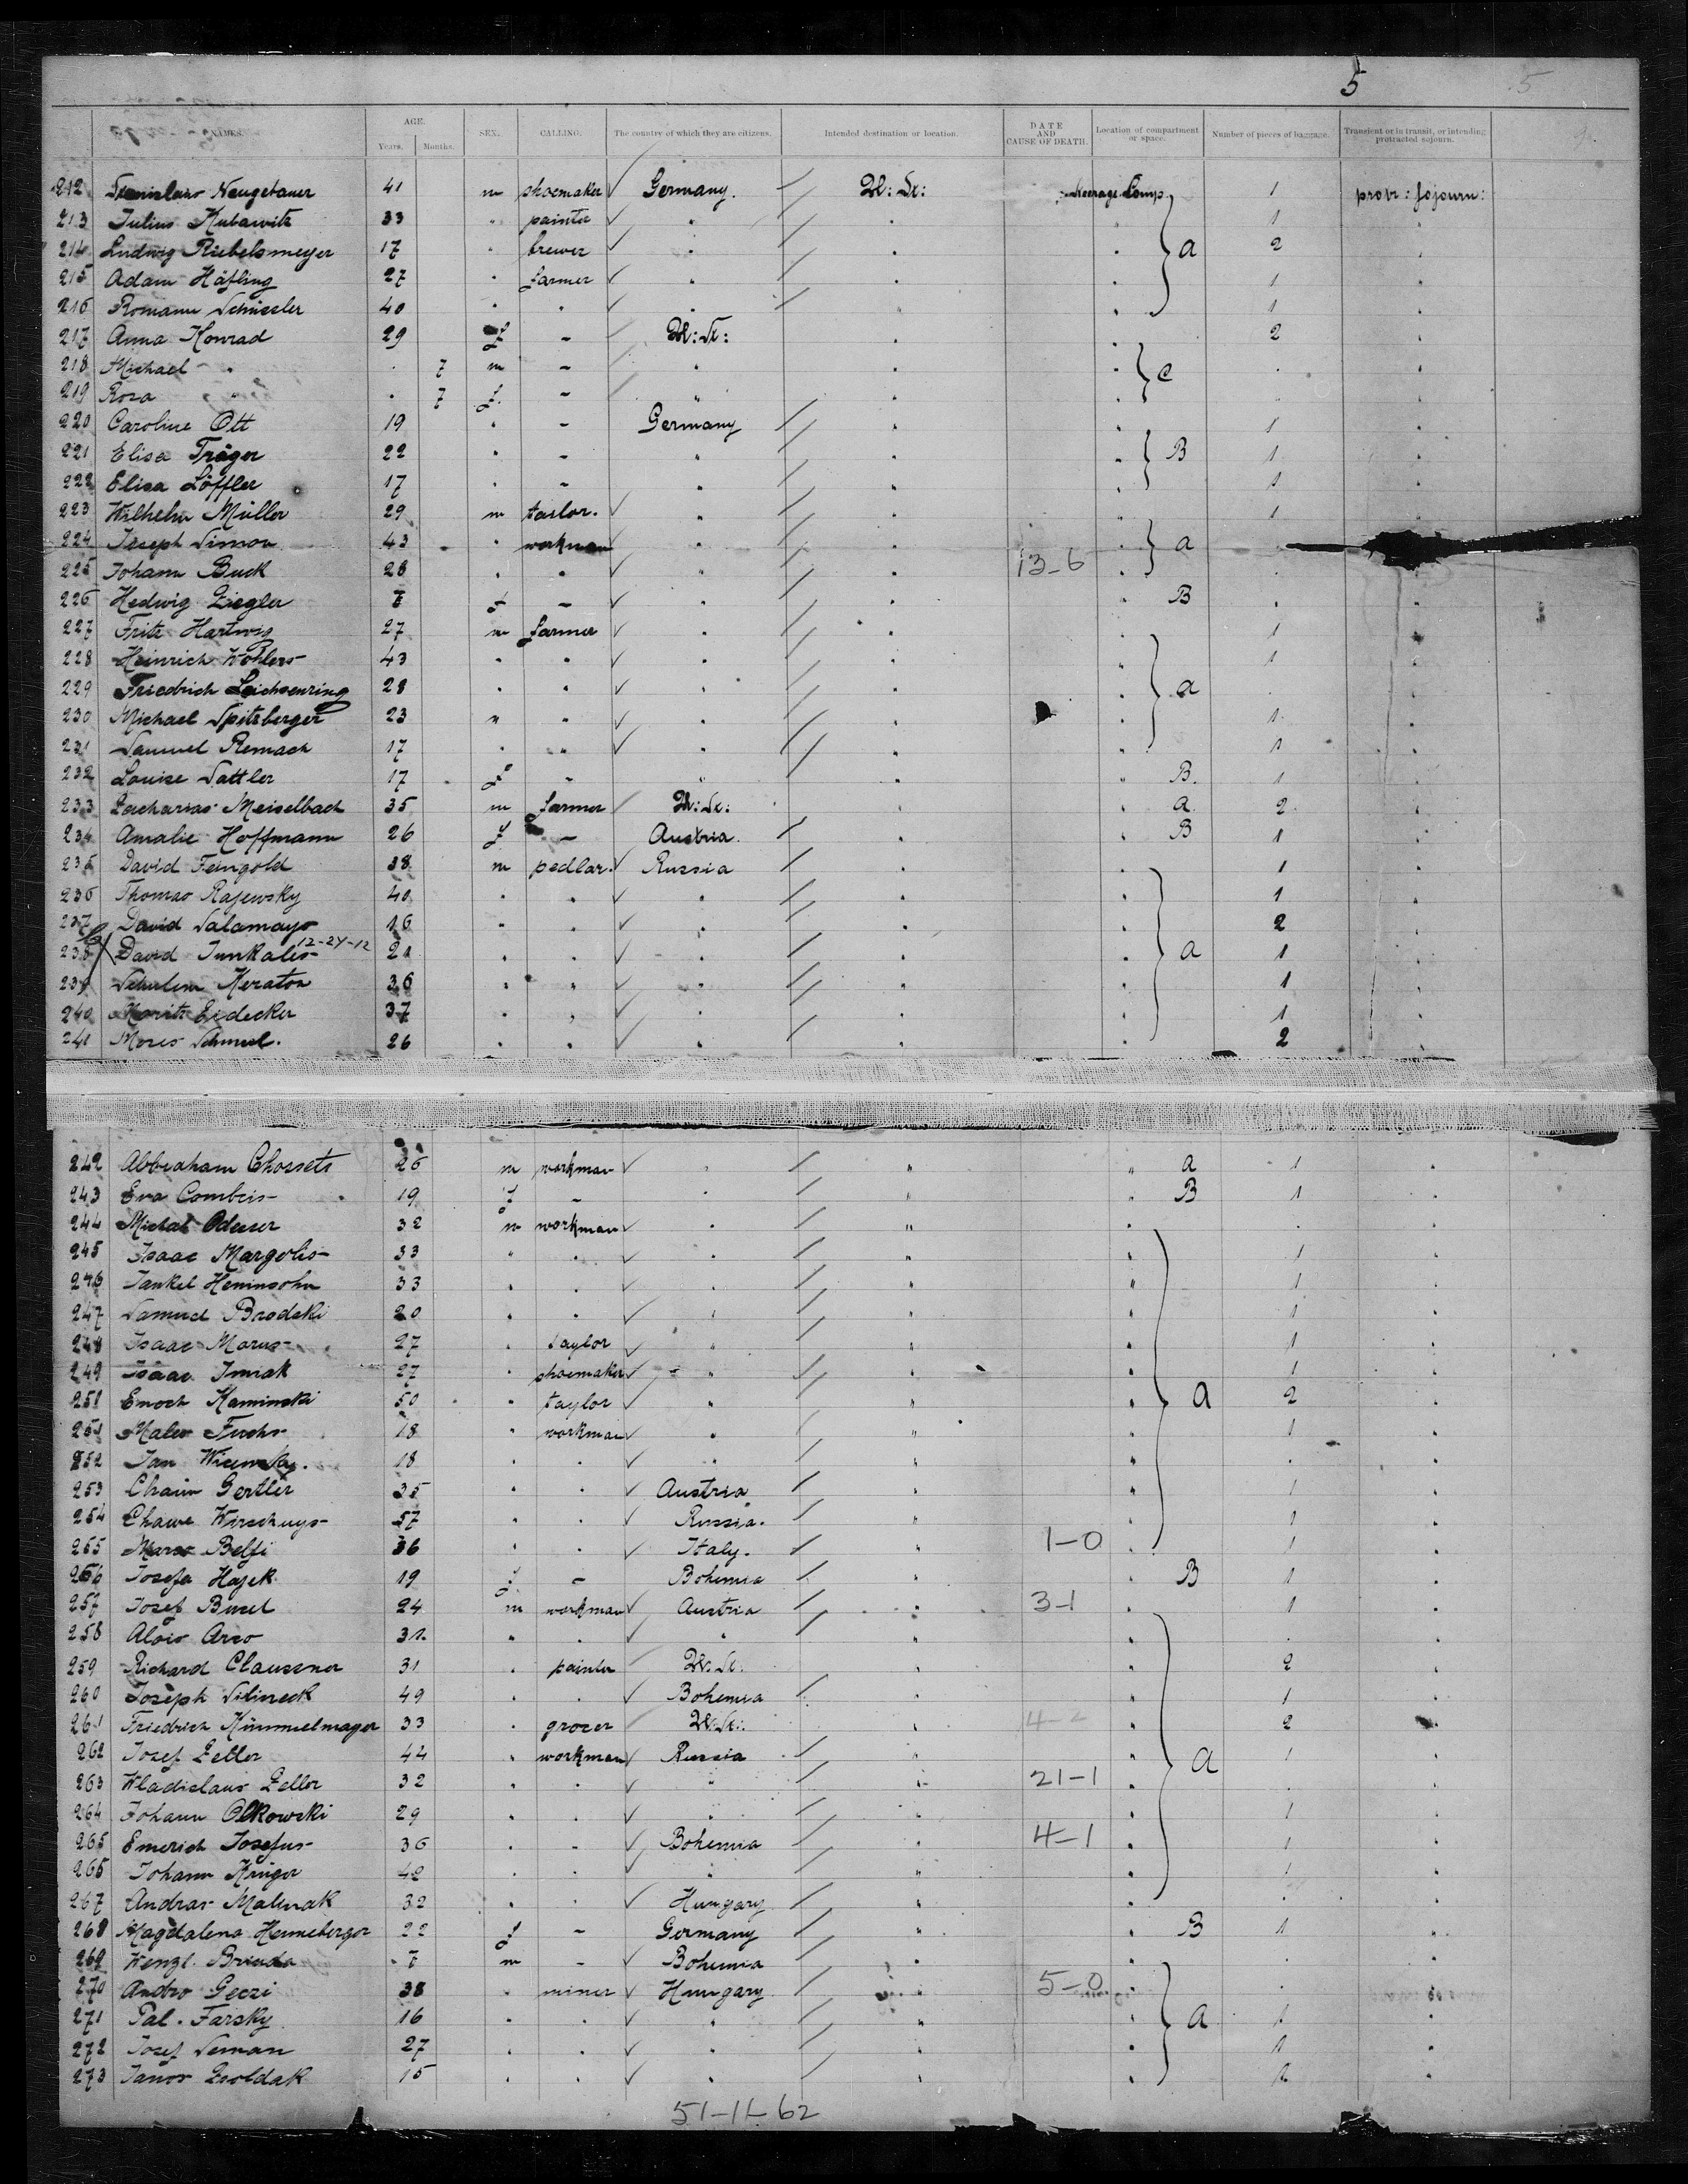 5 5
NAMES. AGE. SEX. CALLING. The country of which they are citizens. Intended destination or location. DATE AND CAUSE OF DEATH. Location of compartment or space. Number of pieces of baggage. Transient or in transit, or intending protracted sojourn.
Years. Months.
212 Stanislaus Neugebauer 41 m shoemaker Germany. Steerage Comp. 1 protr: sojourn:
213 Julius Kubawitz 33 " painter " " " 1 "
214 Ludwig Riebelsmeyer 17 " brewer " " " a 2 "
215 Adam Häfling 27 " farmer " " " 1 "
216 Romann Schissler 40 " " " " " 1 "
217 Anna Konrad 29 f - " " 2 "
218 Michael " 7 m - " " " C " "
219 Rosa " 7 f. - " " " " "
220 Caroline Ott 19 " - Germany " " 1 "
221 Elisa Träger 22 " - " " " B 1 "
222 Elisa Löffler 17 " - " " " 1 "
223 Wilhelm Müller 29 m tailor. " " " 1
224 Joseph Simon 43 " workman " " " a
225 Johann Buck 28 " " " " 13-6 " " "
226 Hedwig Ziegler f - " " " B " "
227 Fritz Hartwig 27 m farmer " " " 1 "
228 Heinrich Wohlers 43 " " " " " 1 "
229 Friedrich Leichsenring 28 " " " " " a " "
230 Michael Spitzberger 23 " " " " " 1 "
231 Samuel Remach 17 " " " " " 1 "
232 Louise Sattler 17 f - " " " B. 1 "
233 Zacharias Meiselbach 35 m farmer " " a 2 "
234 Amalie Hoffmann 26 f - Austria. " " B 1 "
235 David Feingold 38 m pedlar. Russia " " 1 "
236 Thomas Rajewsky 40 " " " " " 1 "
237 David Salamays 16 " " " " " 2 "
238 David Junkalis 12-24-12 21 " " " " " a 1 "
239 Schulim Keraton 36 " " " " " 1 "
240 Moritz Eidecker 37 " " " " " 1 "
241 Moses Schmul. 26 " " " " " 2 "
242 Abbraham Chossets 26 m workman " " " a 1 "
243 Eva Combris 19 f - " " " B 1 "
244 Michal Odesser 32 m workman " " " " "
245 Isaac Margolis 33 " " " " " 1 "
246 Jankel Heninsohn 33 " " " " " 1 "
247 Samuel Brodski 20 " " " " " 1 "
248 Isaac Marus 27 " taylor " " " 1 "
249 Isaac Imiak 27 " shoemaker " " " 1 "
251 Enoch Kaminski 50 " taylor " " " a 2 "
251 Males Fuchs 18 " workman " " " 1 "
252 Jan 18 " " " " " " "
253 Chaim Gertler 35 " " Austria " " 1 "
254 Chawe Wirschuys 57 " " Russia. " " 1 "
255 Marco Belfi 36 " " Italy. " 1-0 " 1 "
256 Josefa Hajek 19 f - Bohemia " " B 1 "
257 Josef Busel 24 m workman Austria " 3-1 " 1 "
258 Alois Arco 31. " " " " " " "
259 Richard Claussner 31 " painter " " 2 "
260 Joseph Silineck 49 " " Bohemia " " 1 "
261 Friedrich Kümmelmayer 33 " grocer " " 2 "
262 Josef Zeller 44 " workman Russia " " a 1 "
263 Wladislaus Zeller 32 " " " " 21-1 " " "
264 Johann Olkowski 29 " " " " " 1 "
265 Emerich Josefus 36 " - Bohemia " 4-1 " 1 "
265 Johann Krüger 42 " " " " " 1 "
267 Andras Malinak 32 " " Hungary " " " "
268 Magdalena Henneberger 22 f - Germany " " B 1 "
269 Wenzl 7 m - Bohemia " " " "
270 Andro Geczi 38 " miner Hungary " 5-0 " " "
271 Pal. Farsky 16 " " " " " a 1 "
272 Josef Seman 27 " " " " " 1 "
273 Janos Zsoldak 15 " " " " " 2 "
51-11-62